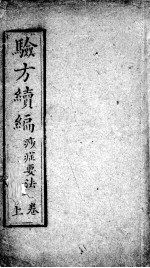 驗方續編
痧症要法
上卷